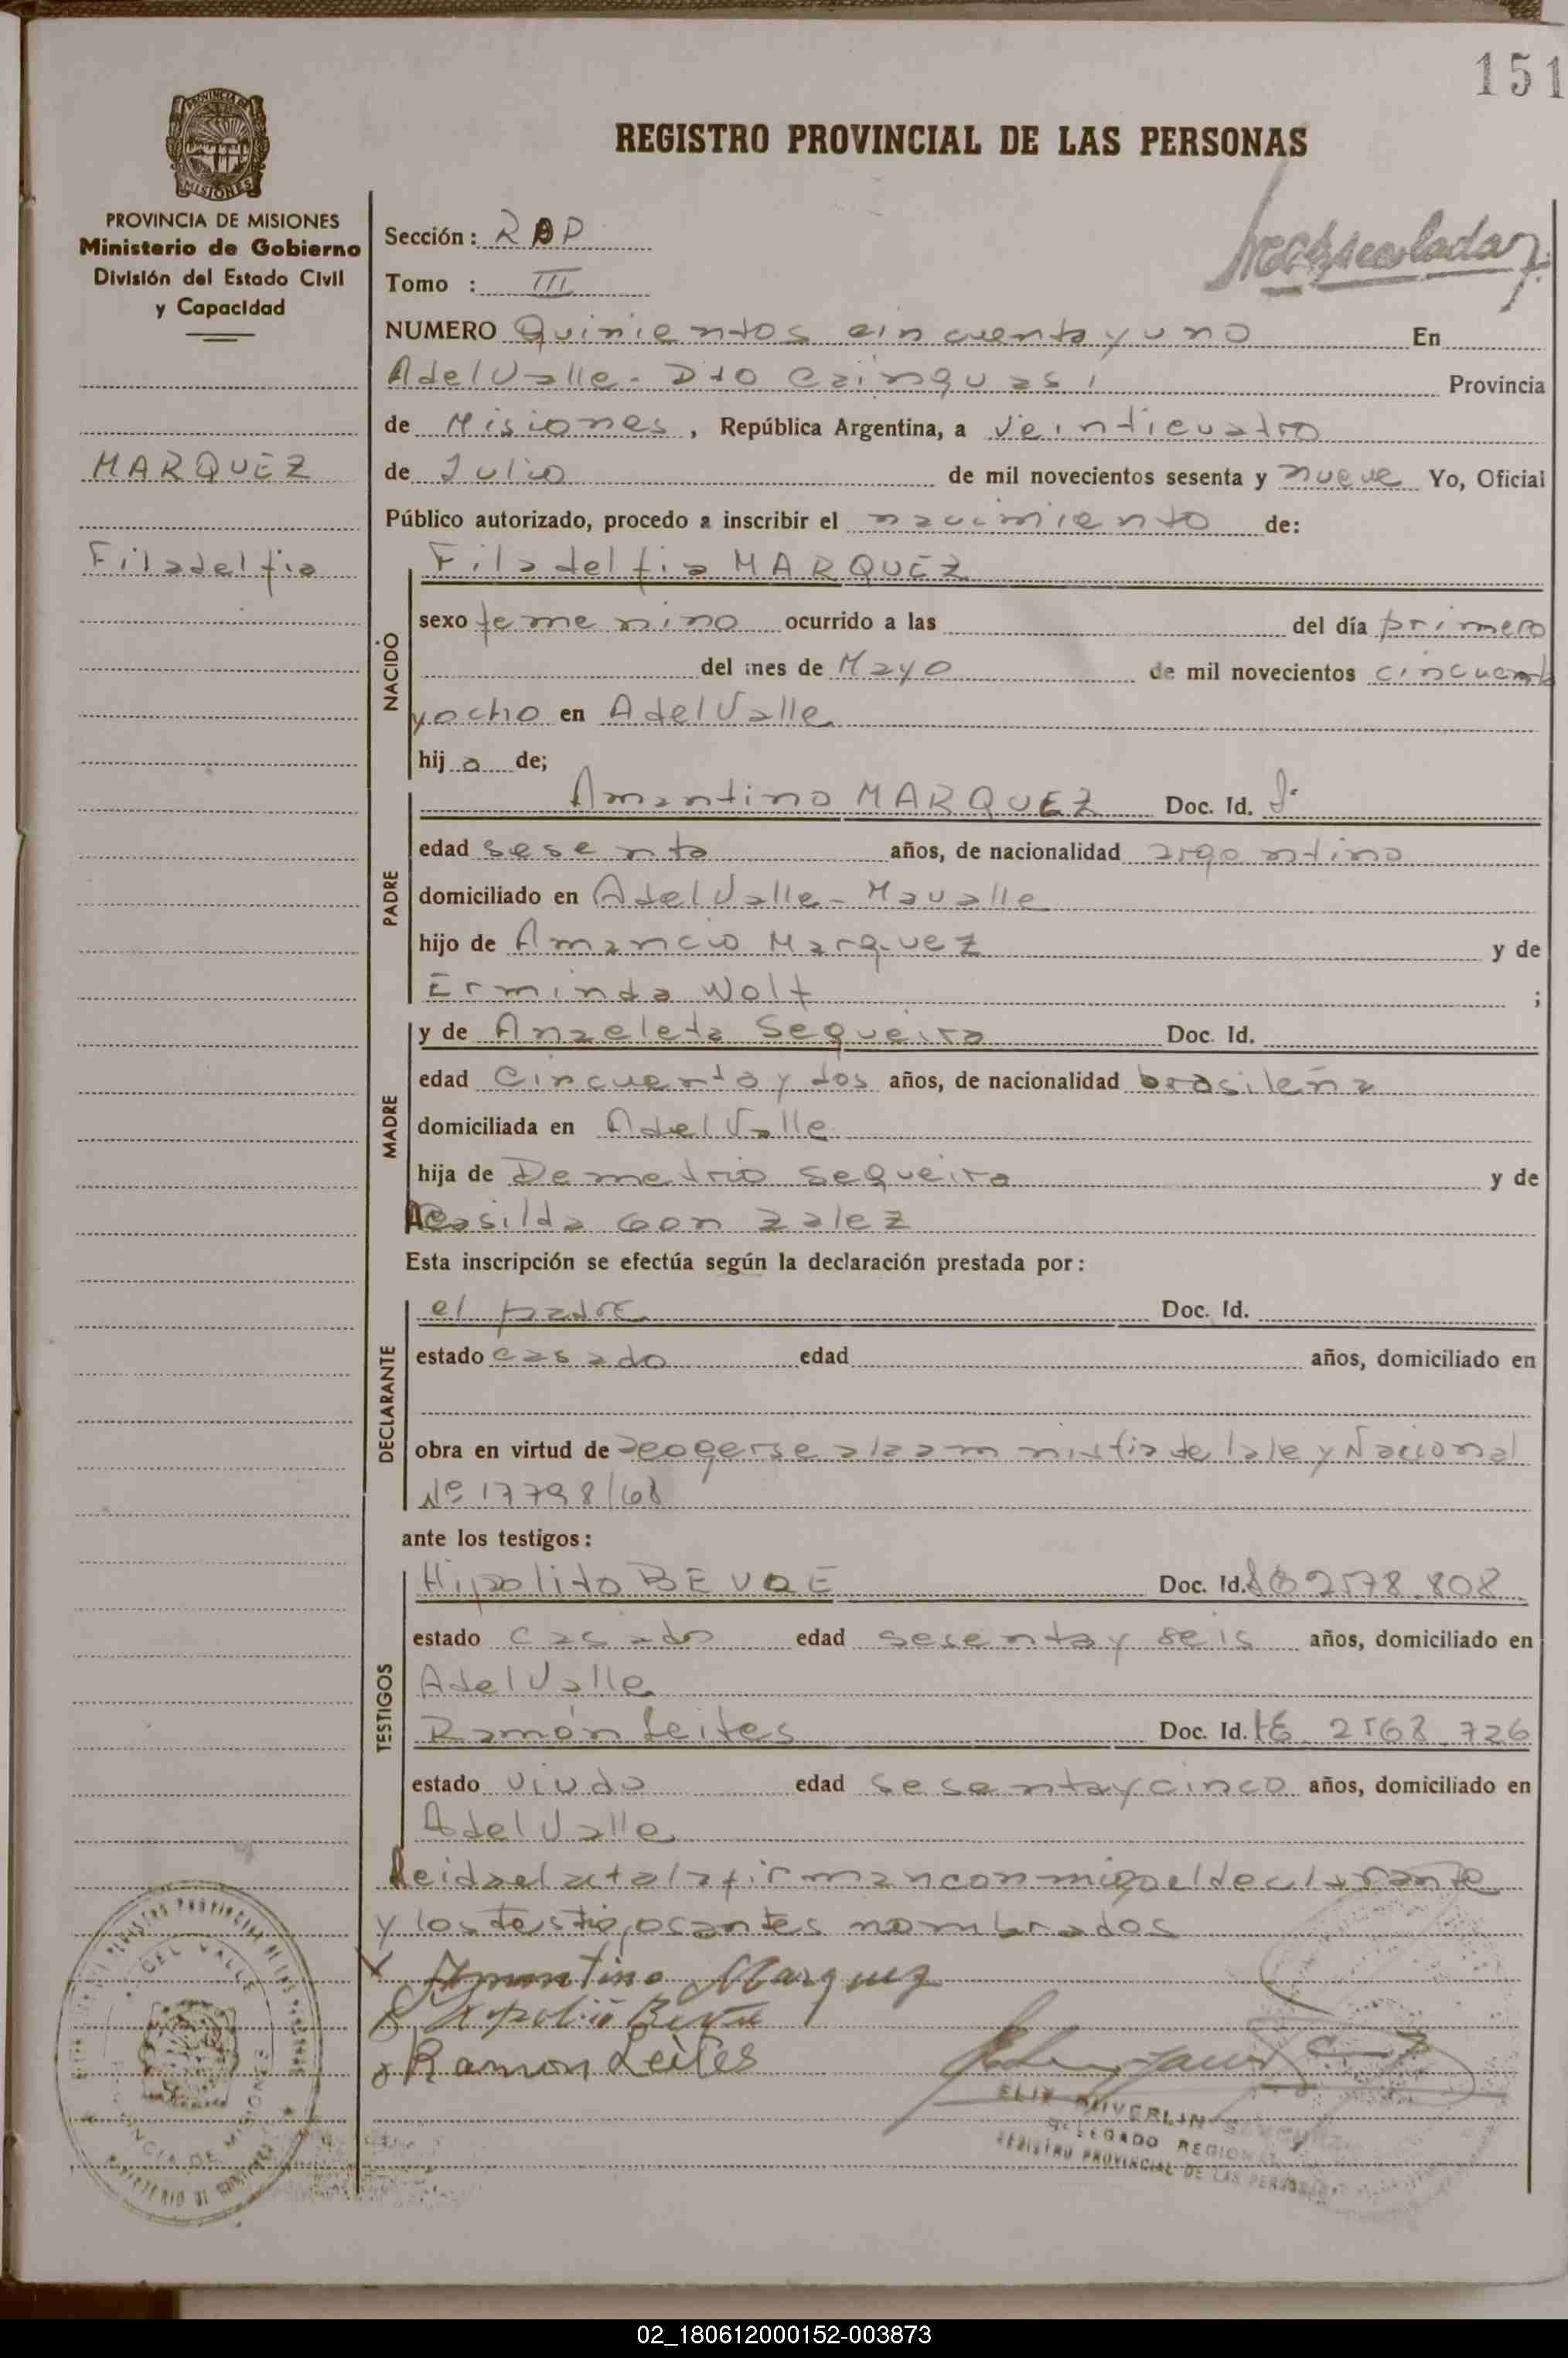 151
REGISTRO PROVINCIAL DE LAS PERSONAS
PROVINCIA DE MISIONES
PROVINCIA DE MISIONES
Ministerio de Gobierno
División del Estado Civil
y Capacidad
MARQUEZ
Filadelfia
Sección:
Tomo : III
NUMERO Quinientos cincuenta y uno En
Adel Valle - Dto Cainguas, Provincia
de Misiones, República Argentina, a Veinticuatro
de Julio de mil novecientos sesenta y nueve Yo, Oficial
Público autorizado, procedo a inscribir el nacimiento de:
NACIDO
Filadelfia MARQUEZ
sexo femenino ocurrido a las del día primero
del mes de Mayo de mil novecientos cincuenta
y ocho en Adel Valle
hij a de;
PADRE
Amantino MARQUEZ Doc. Id.
edad sesenta años, de nacionalidad argentino
domiciliado en Adel Valle - Mavalle
hijo de Amancio Marquez y de
Erminda Wolf ;
MADRE
y de Anacleta Sequeira Doc. Id.
edad Cincuenta y dos años, de nacionalidad brasileña
domiciliada en Adel Valle
hija de Demetrio Sequeira y de
Casilda Gonzalez
Esta inscripción se efectúa según la declaración prestada por:
DECLARANTE
el padre Doc. Id.
estado casado edad años, domiciliado en
obra en virtud de acogerse a la amnistia de la ley Nacional
Nº 17798/68
ante los testigos:
TESTIGOS
Hipolito Doc. Id. 2578.808
estado casado edad sesenta y seis años, domiciliado en
Adel Valle
Ramón Leites Doc. Id. 2568.726
estado viudo edad sesenta y cinco años, domiciliado en
Adel Valle
Leida el acta la firman conmigo el declarante
y los testigos antes nombrados
Amantino Marquez
Ramon Leites
DELEGADO REGIONAL
REGISTRO PROVINCIAL DE LAS PERSONAS
DEL VALLE
PROVINCIA DE MISIONES
MINISTERIO DE GOBIERNO
02_180612000152-003873